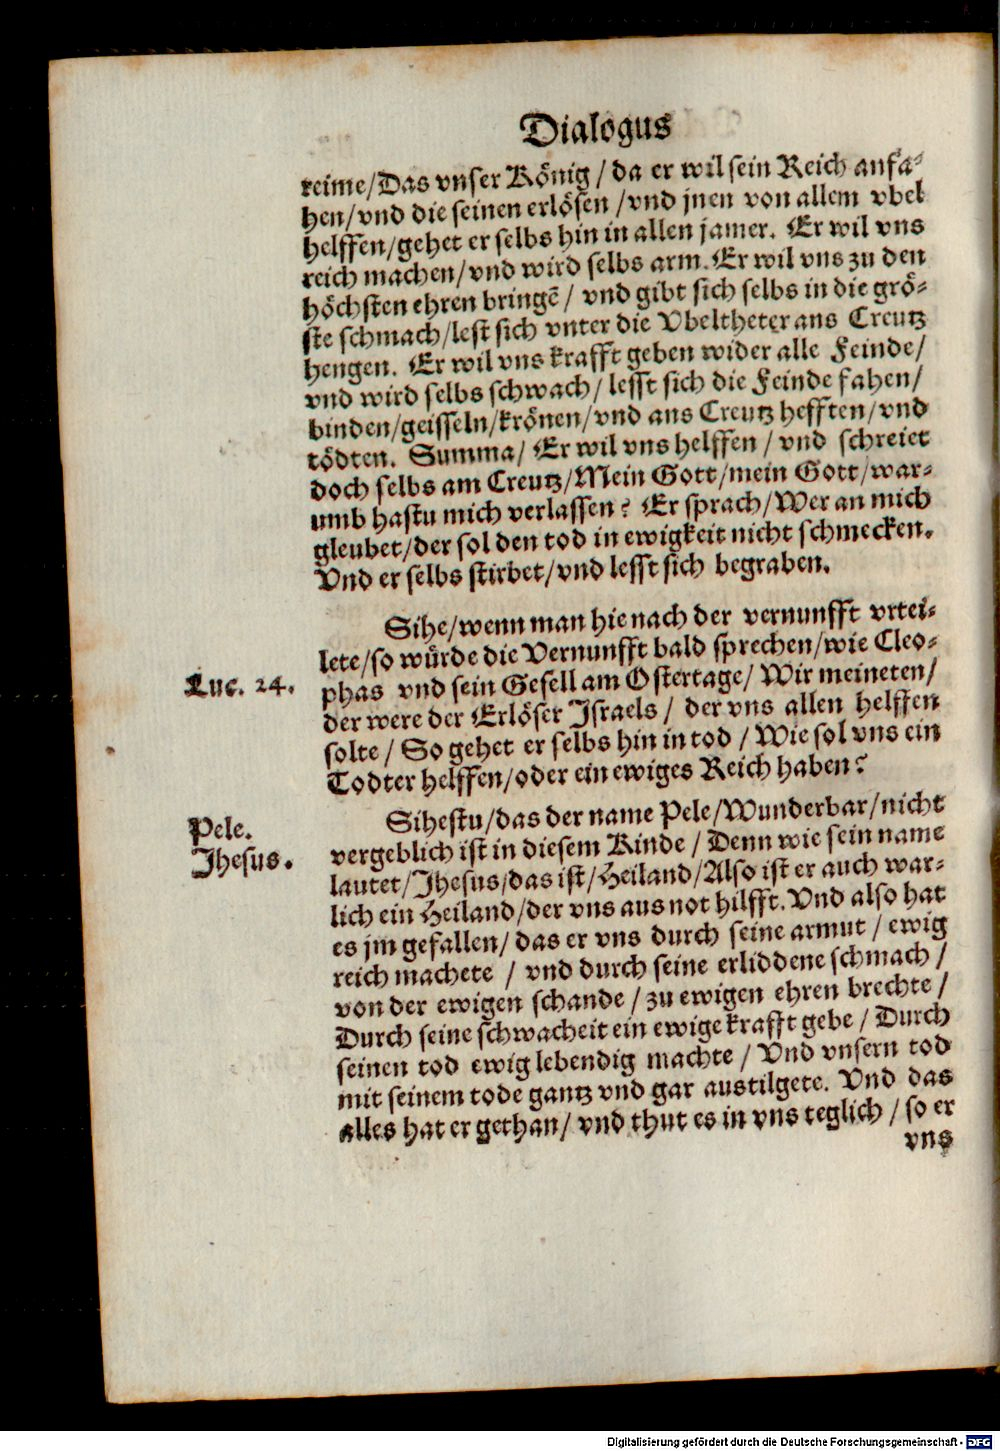 Dialogus
reime/Das vnser König/da er wil sein Reich anfa-
hen/vnd die seinen erlösen/vnd jnen von allem vbel
helffen/gehet er selbs hin in allen jamer. Er wil vns
reich machen/vnd wird selbs arm. Er wil vns zu den
höchsten ehren bringē/vnd gibt sich selbs in die grö-
ste schmach/lest sich vnter die Vbeltheter ans Creutz
hengen. Er wil vns krafft geben wider alle Feinde/
vnd wird selbs schwach/lesst sich die Feinde fahen/
binden/geisseln/krönen/vnd ans Creutz hefften/vnd
tödten. Summa/Er wil vns helffen/vnd schreiet
doch selbs am Creutz/Mein Gott/mein Gott/war-
umb hastu mich verlassen? Er sprach/Wer an mich
gleubet/der sol den tod in ewigkeit nicht schmecken.
Vnd er selbs stirbet/vnd lesst sich begraben.
Sihe/wenn man hie nach der vernunfft vrtei-
lete/so würde die Vernunfft bald sprechen/wie Cleo-
Luc. 24.
phas vnd sein Gesell am Ostertage/Wir meineten/
der were der Erlöser Israels/der vns allen helffen
solte/So gehet er selbs hin in tod/Wie sol vns ein
Todter helffen/oder ein ewiges Reich haben?
Pele.
Jhesus.
Sihestu/das der name Pele/Wunderbar/nicht
vergeblich ist in diesem Kinde/Denn wie sein name
lautet/Jhesus/das ist/Heiland/Also ist er auch war-
lich ein Heiland/der vns aus not hilfft. Vnd also hat
es jm gefallen/das er vns durch seine armut/ewig
reich machete/vnd durch seine erliddene schmach/
von der ewigen schande/zu ewigen ehren brechte/
Durch seine schwacheit ein ewige krafft gebe/Durch
seinen tod ewig lebendig machte/Vnd vnsern tod
mit seinem tode gantz vnd gar austilgete. Vnd das
alles hat er gethan/vnd thut es in vns teglich/so er
vns
Digitalisierung gefördert durch die Deutsche Forschungsgemeinschaft - DFG